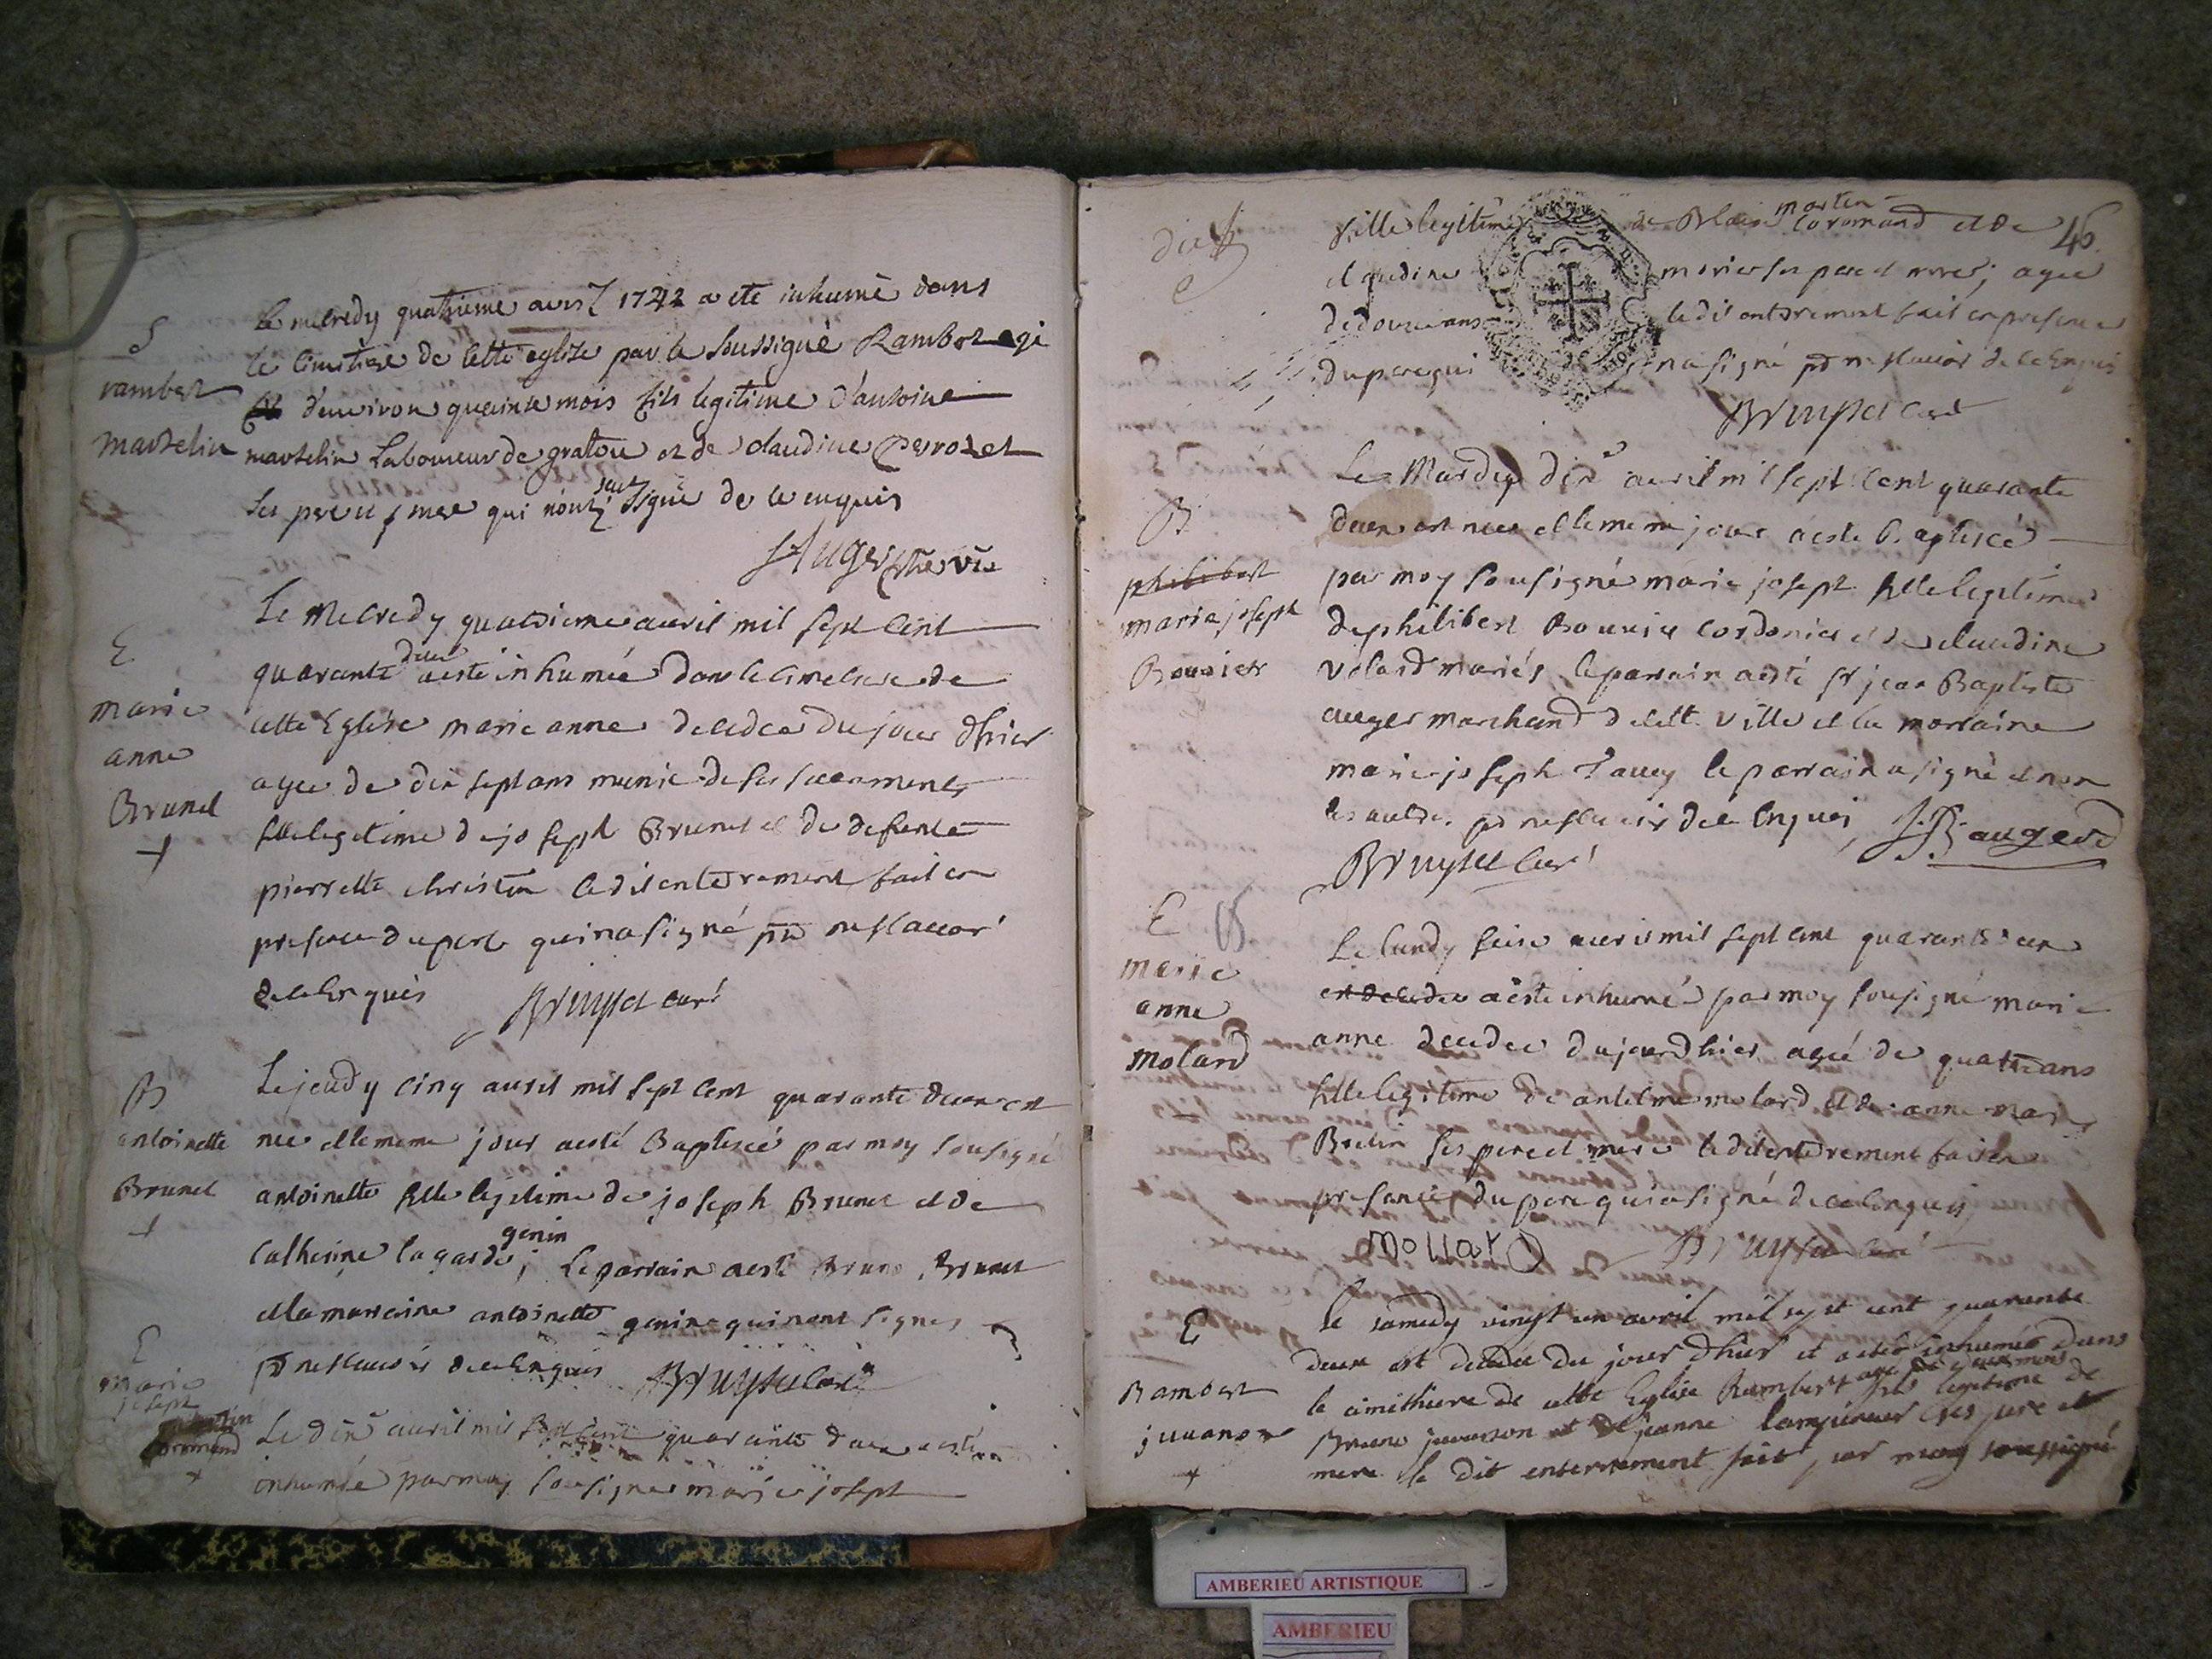 S
rambert
martelin
le mecredy quatrieme avril 1742 a eté inhumé dans
le cimetiere de cette eglise par le soussigné Rambert agé
d'environ quinze mois fils legitime d'antoine
martelin Laboureur de gratou et de claudine perrozet
ses pere et mere qui n'ont sceu signé de ce enquis
Auger ptre vic
E
marie
anne
Brunet
Le Mecredy quatrieme avril mil sept cent
quarante deux a esté inhumée dans le cimetiere de
cette Eglise marie anne decedee du jour d'hier
agee de dix sept ans munie de ses sacrements
fille legitime de joseph Brunet et de defunte
pierrette christin ledit enterrement fait en
presence du pere qui n'a signé pr ne scavoir
de ce Enquis
Bruyset curé
B
antoinette
Brunet
Le jeudy cinq avril mil sept cent quarante deux est
nee et le meme jour a esté Baptisée par moy sousigné
antoinette fille legitime de joseph Brunet et de
Catherine lagarde genin ; Le parrain a esté Bruno Brunet
et la marraine antoinette genin qui n'ont signes
pr ne scavoir de ce Enquis Bruyset curé
E
marie
joseph
Le dix avril mil sept cent quarante deux a esté
inhumée par moy sousigné marie joseph
46
fille legitime de Blaise martin coromand et de
claudine morier ses pere et mere ; agee
de douze ans ledit enterrement fait en presence
du pere qui n'a signé pr ne scavoir de ce Enquis
Bruyset curé
B
philibert
marie joseph
Bouvier
Le Mardy dix avril mil sept cent quarante
deux est nee et le meme jour a esté Baptisée
par moy sousigné marie joseph fille legitime
de philibert Bouvier cordonier et de claudine
volard mariés, le parrain a esté sr jean Baptiste
auger marchand de cette ville et la marraine
marie joseph le parrain a signé et non
les autres pr ne scavoir de ce Enquis J. B. auger
Bruyset curé
E
marie
anne
molard
Le lundy seize avril mil sept cent quarante deux
est decedee a esté inhumée par moy sousigné marie
anne decedee du jourd'hier agée de quatre ans
fille legitime de antelme molard et de anne marie
Bredin ses pere et mere ledit enterrement fait en
presence du pere qui a signé de ce Enquis
mollard Bruyset curé
E
Rambert
juvanon
le samedy vingt un avril mil sept cent quarante
deux est decedee du jour d'hier et a esté inhumé dans
le cimethiere de cette Eglise Rambert agé de deux mois fils legitime de
Bruno juvanon et de jeanne ses pere et
mere le dit enterrement fait par moy soussigné
AMBERIEU ARTISTIQUE
AMBERIEU